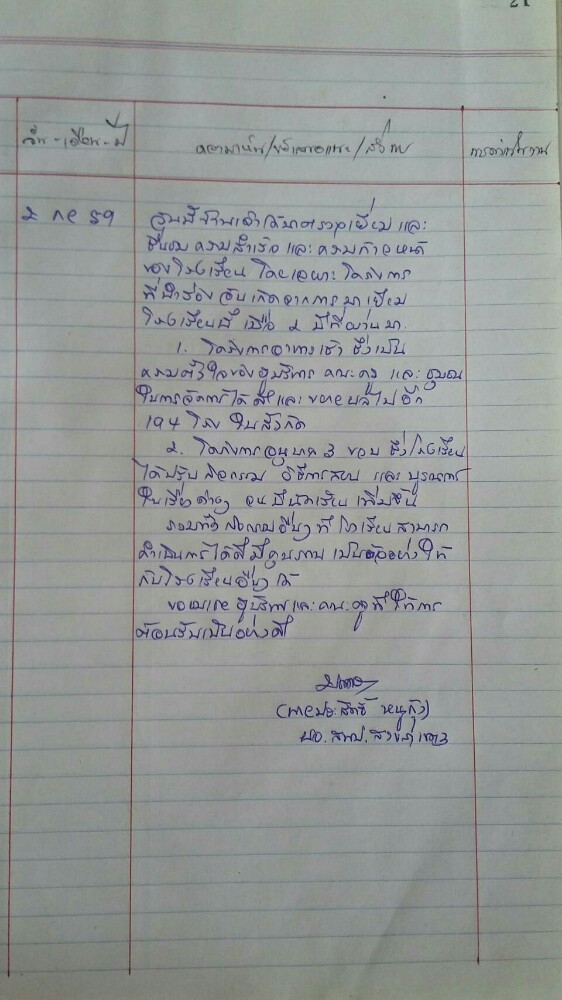 21
วัน-เดือน-ปี
ความเห็น/ข้อเสนอแนะ/สั่งการ
การดำเนินงาน
2 กย 59
วันนี้ข้าพเจ้าได้มาตรวจเยี่ยม และ
ชื่นชมความสำเร็จ และความก้าวหน้า
ของโรงเรียน โดยเฉพาะ โครงการ
ที่นำร่อง อันเกิดจากการมาเยี่ยม
โรงเรียนนี้ เมื่อ 2 ปีที่ผ่านมา
1. โครงการอาหารเช้า ซึ่งเป็น
ความตั้งใจของผู้บริหาร คณะครู และชุมชน
ในการจัดการได้ดี และขยายผลไปอีก
194 โรง ในสังกัด
2. โครงการอนุบาล 3 ขวบ ซึ่งโรงเรียน
ได้ปรับกิจกรรม วิธีการสอน และบูรณาการ
ในเรื่องต่างๆ จนมีนักเรียนเพิ่มขึ้น
รวมทั้งกิจกรรมอื่นๆ ที่โรงเรียนสามารถ
ดำเนินการได้ดีมีคุณภาพ เป็นตัวอย่างให้
กับโรงเรียนอื่นๆ ได้
ขอขอบคุณผู้บริหารและคณะครูที่ให้การ
ต้อนรับเป็นอย่างดี
(นายประสิทธิ์ หนูกุ้ง)
ผอ.สพป.สงขลา เขต 3